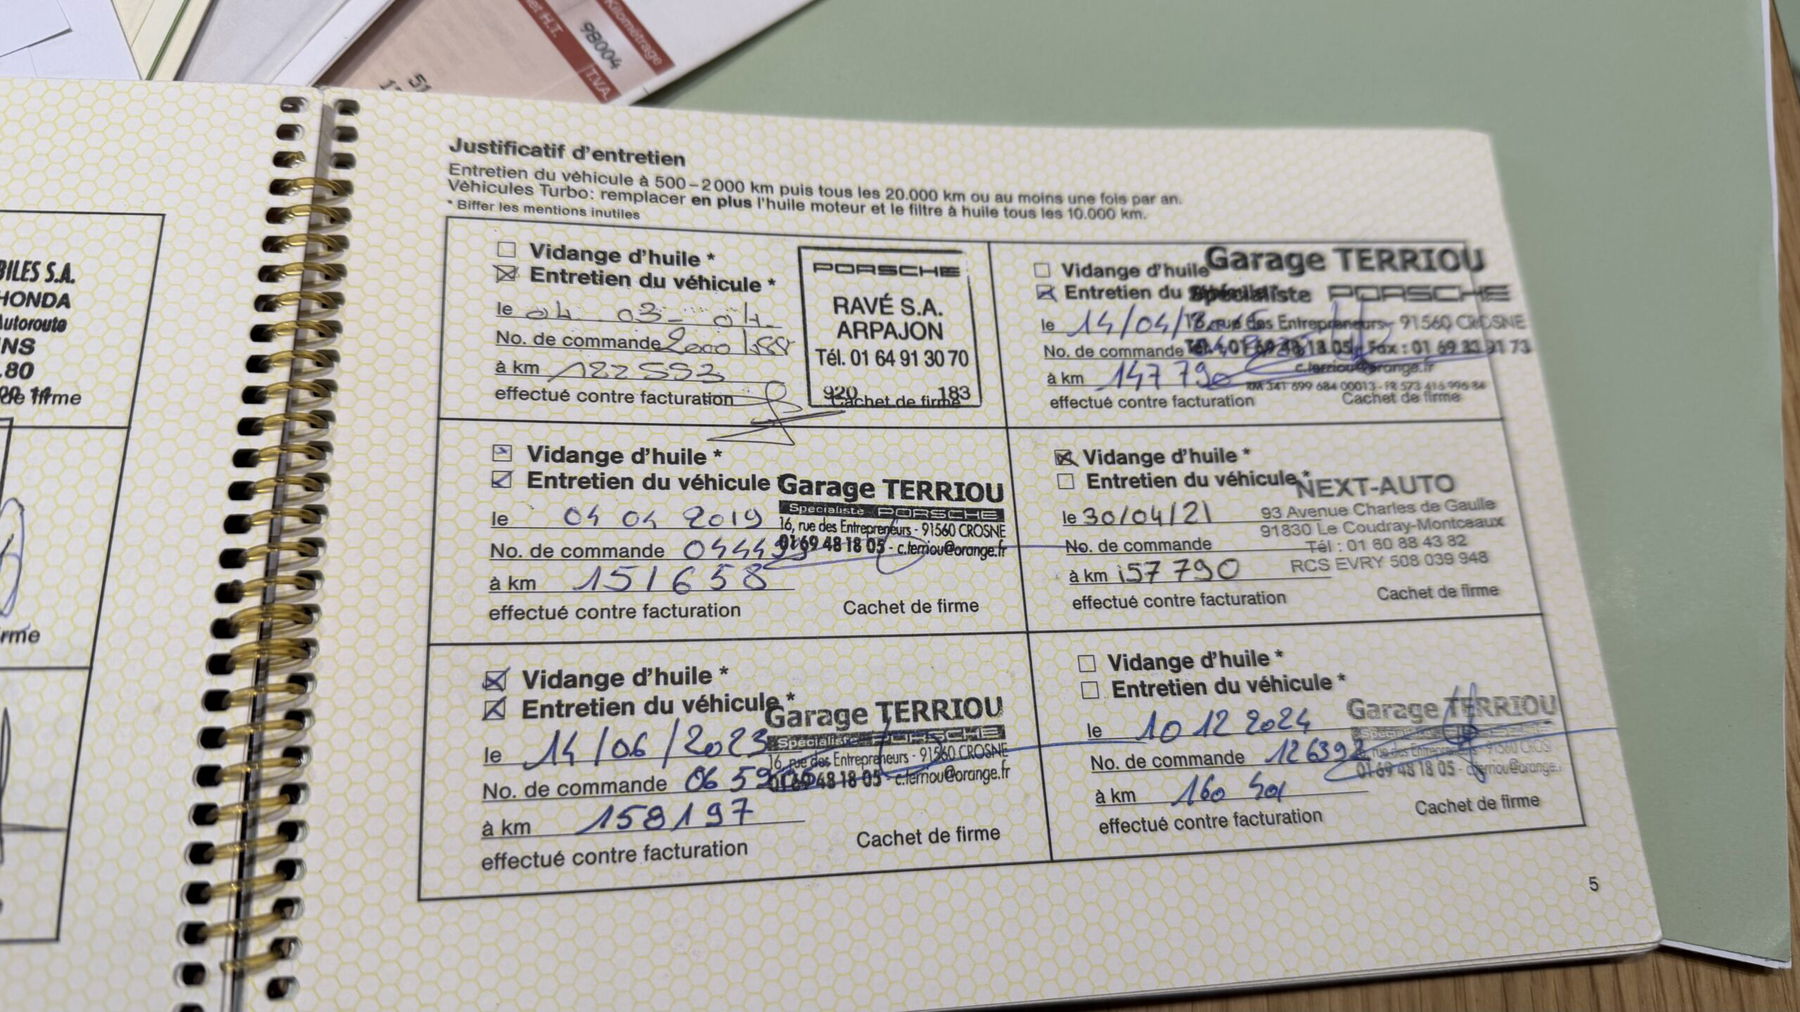 et H.T.
Kilométrage
98004
T.V.A.
51
BILES S.A.
HONDA
Autoroute
NS
.80
de firme
rme
Justificatif d'entretien
Entretien du véhicule à 500–2000 km puis tous les 20.000 km ou au moins une fois par an.
Véhicules Turbo: remplacer en plus l'huile moteur et le filtre à huile tous les 10.000 km.
* Biffer les mentions inutiles
Vidange d'huile *
Entretien du véhicule *
le 04 03 04
No. de commande
à km 122553
effectué contre facturation
PORSCHE
RAVÉ S.A.
ARPAJON
Tél. 01 64 91 30 70
920 183
Cachet de firme
Vidange d'huile
Entretien du
le 14/04/
No. de commande
à km 147790
effectué contre facturation
Garage TERRIOU
Spécialiste PORSCHE
rue des Entrepreneurs - 91560 CROSNE
Tél. : 01 69 48 18 05 - Fax : 01 69 83 91 73
c.terriou@orange.fr
Cachet de firme
Vidange d'huile *
Entretien du véhicule
le 04 04 2019
No. de commande
à km 151658
effectué contre facturation
Garage TERRIOU
Spécialiste PORSCHE
16, rue des Entrepreneurs - 91560 CROSNE
01 69 48 18 05 - c.terriou@orange.fr
Cachet de firme
Vidange d'huile *
Entretien du véhicule *
le 30/04/21
No. de commande
à km 157790
effectué contre facturation
NEXT-AUTO
93 Avenue Charles de Gaulle
91830 Le Coudray-Montceaux
Tél : 01 60 88 43 82
RCS EVRY 508 039 948
Cachet de firme
Vidange d'huile *
Entretien du véhicule *
le 14/06/2023
No. de commande
à km 158197
effectué contre facturation
Garage TERRIOU
Spécialiste PORSCHE
16, rue des Entrepreneurs - 91560 CROSNE
01 69 48 18 05 - c.terriou@orange.fr
Cachet de firme
Vidange d'huile *
Entretien du véhicule *
le 10 12 2024
No. de commande 126392
à km 160 401
effectué contre facturation
Garage TERRIOU
01 69 48 18 05 - c.terriou@orange.
Cachet de firme
5